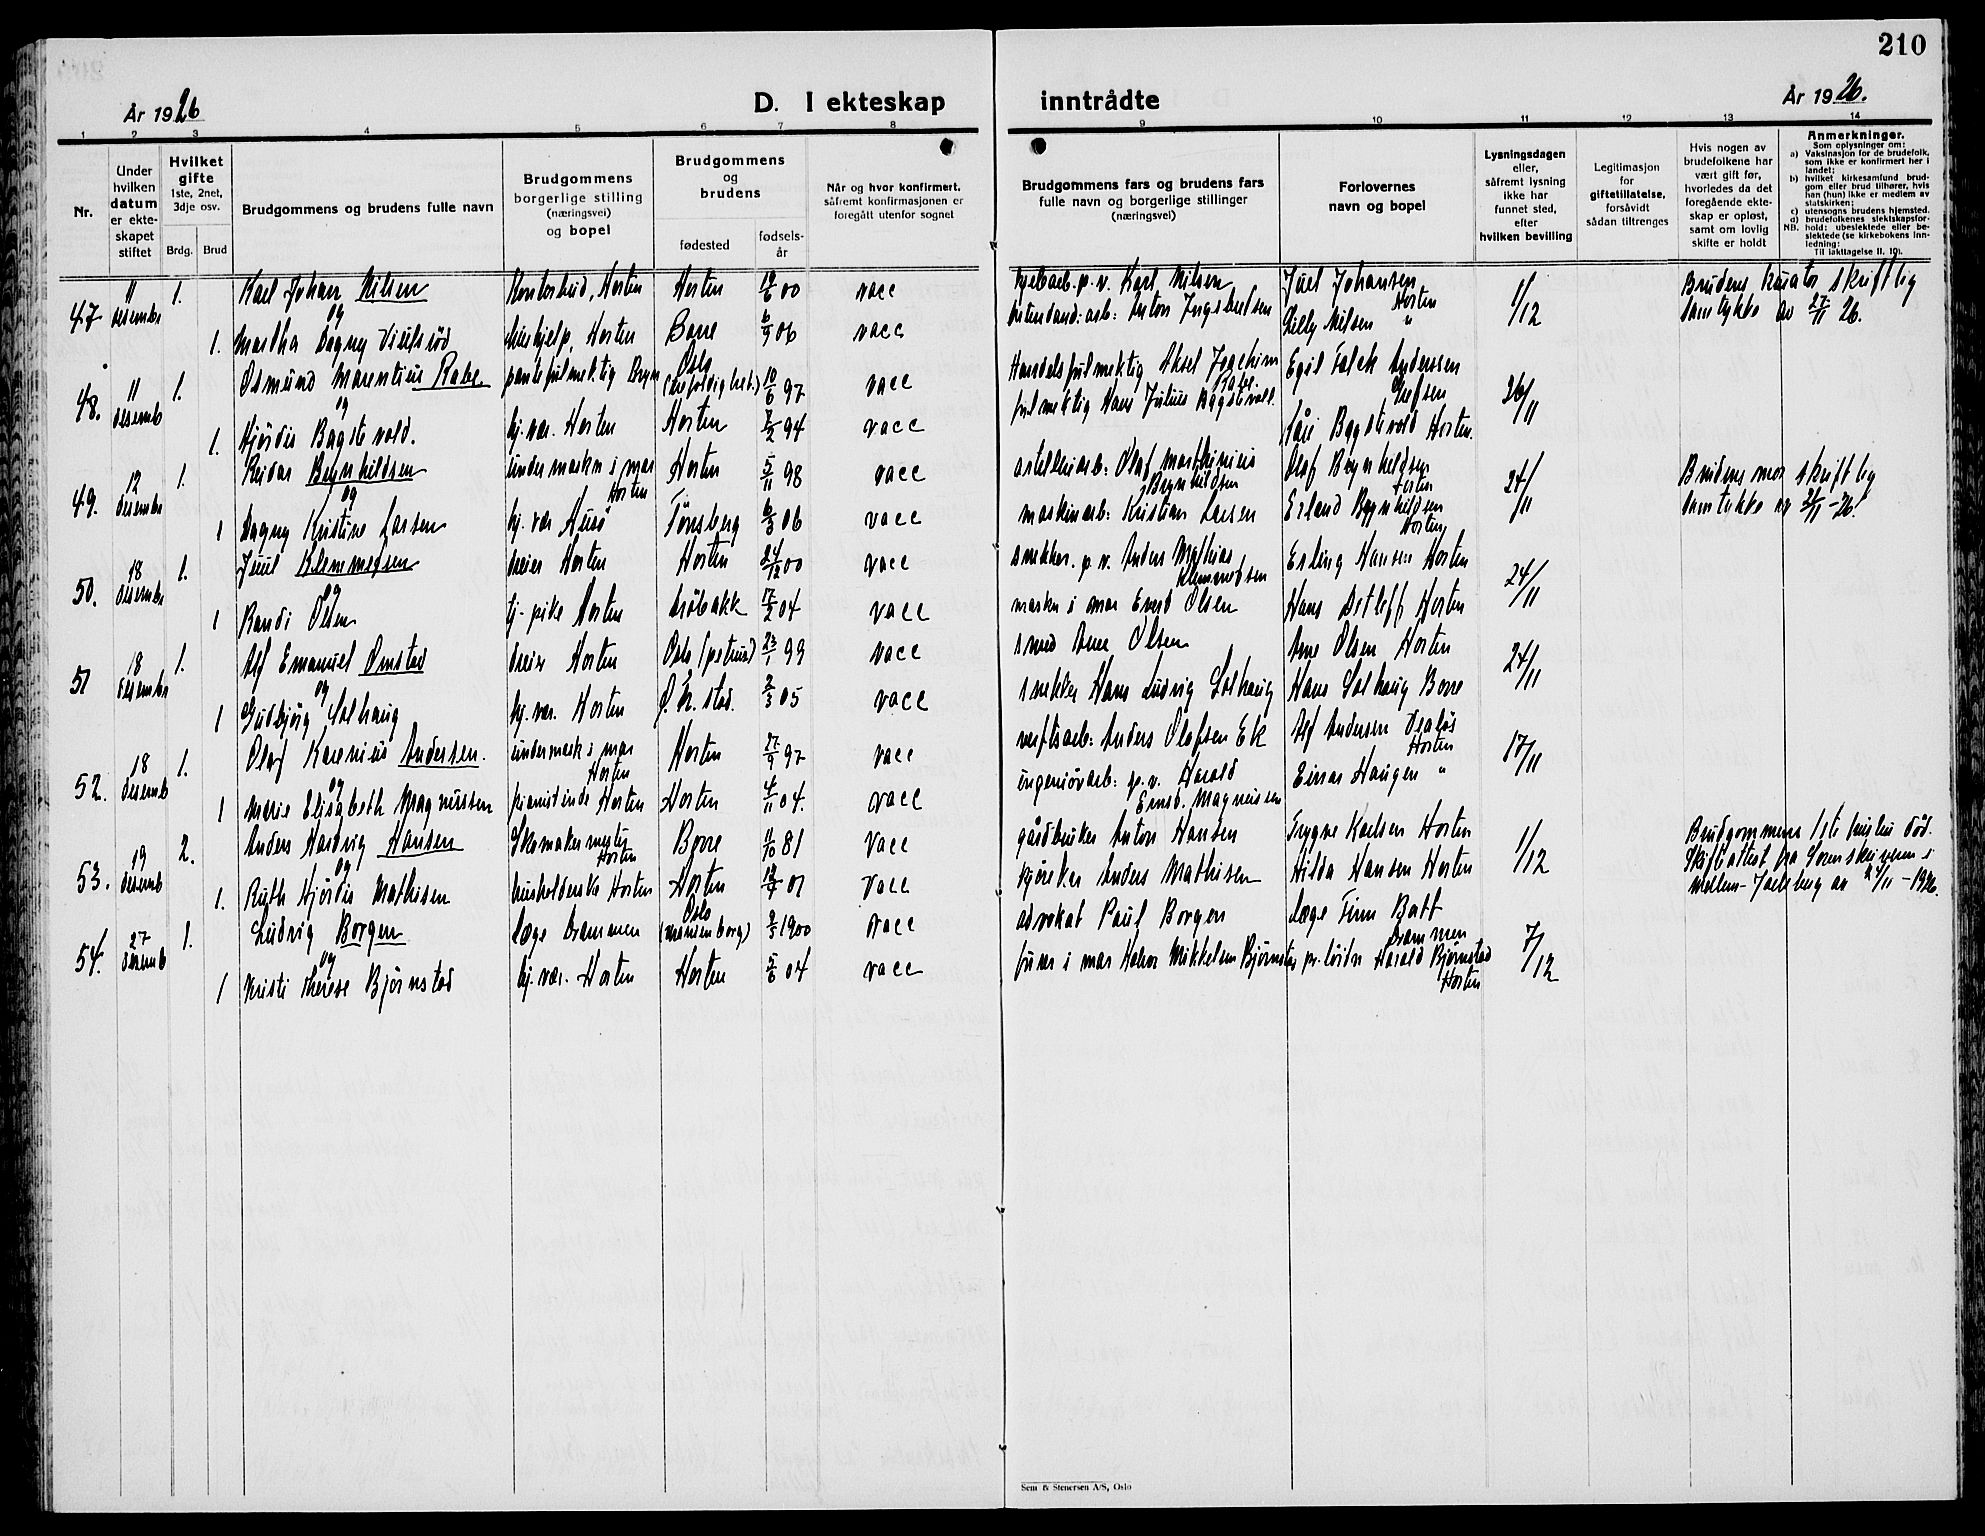 210
År 1926
D. I ekteskap inntrådte
År 1926.
1 2 3 4 5 6 7 8 9 10 11 12 13 14
Nr.
Under hvilken datum er ekteskapet stiftet
Hvilket gifte
1ste, 2net, 3dje osv.
Brdg. Brud
Brudgommens og brudens fulle navn
Brudgommens borgerlige stilling (næringsvei) og bopel
Brudgommens og brudens
fødested
fødselsår
Når og hvor konfirmert, såfremt konfirmasjonen er foregått utenfor sognet
Brudgommens fars og brudens fars fulle navn og borgerlige stillinger (næringsvei)
Forlovernes navn og bopel
Lysningsdagen eller, såfremt lysning ikke har funnet sted, efter hvilken bevilling
Legitimasjon for giftetillatelse, forsåvidt sådan tiltrenges
Hvis nogen av brudefolkene har vært gift før, hvorledes da det foregående ekteskap er opløst, samt om lovlig skifte er holdt
Anmerkninger.
Som oplysninger om:
a) Vaksinasjon for de brudefolk, som ikke er konfirmert her i landet;
b) hvilket kirkesamfund brudgom eller brud tilhører, hvis han (hun) ikke er medlem av statskirken;
c) utensogns brudens hjemsted.
d) brudefolkenes slektskapsforhold: ubeslektede eller beslektede (se kirkebokens innledning:
NB.
Til iakttagelse II. 10).
47 11 desembr 1. Karl Johan Nilsen Kontorbud, Horten Horten 00 vacc
Karl Nilsen Juel Johansen Horten 1/12 Brudens kurator skriftlig
og
1. Martha Dagny Horten Borre 6/9 06 vacc
Lilly Nilsen " samtykke av 27/11 26.
48. 11 desemb 1. Osmund Marentius Rabe Oslo 10/6 97 vacc
Handelsfulmektig Aksel Joachim Rabe. Egil Falck Anderssen Grefsen 26/11
og
1. Hjørdis Bagstevold. hj. vær. Horten Horten 94 vacc
fulmektig Hans Julius Bagstevold. Bagstevold Horten.
49. 12 desembr 1. Reidar Brynhildsen undermaskn i mar Horten Horten 5/11 98 vacc
Olaf Marthinius Brynhildsen Olaf Brynhildsen Horten 24/11 Brudens mor skriftlig
og
1 Dagny Kristine Larsen hj. vær Åsnes Tønsberg 06 vacc
maskinarb: Kristian Larsen Erland Brynhildsen Horten samtykke
50. 18 desembr 1. Juul Klemmetsen dreier Horten Horten 24/12 00 vacc
snekker. p. v. Anders Mathias Klemmetsen Erling Hansen Horten 24/11
og
1 Randi Olsen hj-pike Horten Drøbakk 04 vacc
maskn i mar Olsen Hans Detleff Horten
51 18 desembr 1. Alf Emanuel Onstad dreier Horten Oslo 23/1 99 vacc
smed Arne Olsen Arne Olsen Horten 24/11
og
1 Gudbjørg Solhaug hj. vær. Horten 05 vacc
snekker Hans Ludvig Solhaug Hans Solhaug Borre
52. 18 desemb 1. Olaf Karenius Andersen. undermask i mar Horten Horten 27/9 97 vacc
verftsarb: Anders Olafsen Ek Alf Andersen Horten 17/11
og
1 Marie Elisabeth Magnussen pianistinde Horten Horten 4/11 04. vacc
ingeniørarb: p. v. Harald Magnussen Einar Haugen "
53. 19 desemb 2. Anders Hartvig Hansen Skomakermester Horten Borre 11/10 81 vacc
gårdbruker Anton Hansen Trygve Karlsen Horten 1/12 Brudgommens 1ste hustru død.
og
Skifteattest fra Sorenskriveren i
1. Ruth Hjørdis Mathisen husholderske Horten Horten 01 vacc
kjøreker Anders Mathisen Hilda Hansen Horten Mellem-Jarlsberg av 24/11-1926.
54. 27 desemb 1. Ludvig Borgen læge Drammen Oslo 1900 vacc
advokat Paul Borgen læge Finn Batt Drammen 7/12
og
1 Kristi Therese Bjørnstad hj. vær. Horten Horten 5/6 04 vacc
i mar Halvor Mikkelsen Bjørnstad pr. løitn Harald Bjørnstad Horten
Sem & Stenersen A/S, Oslo